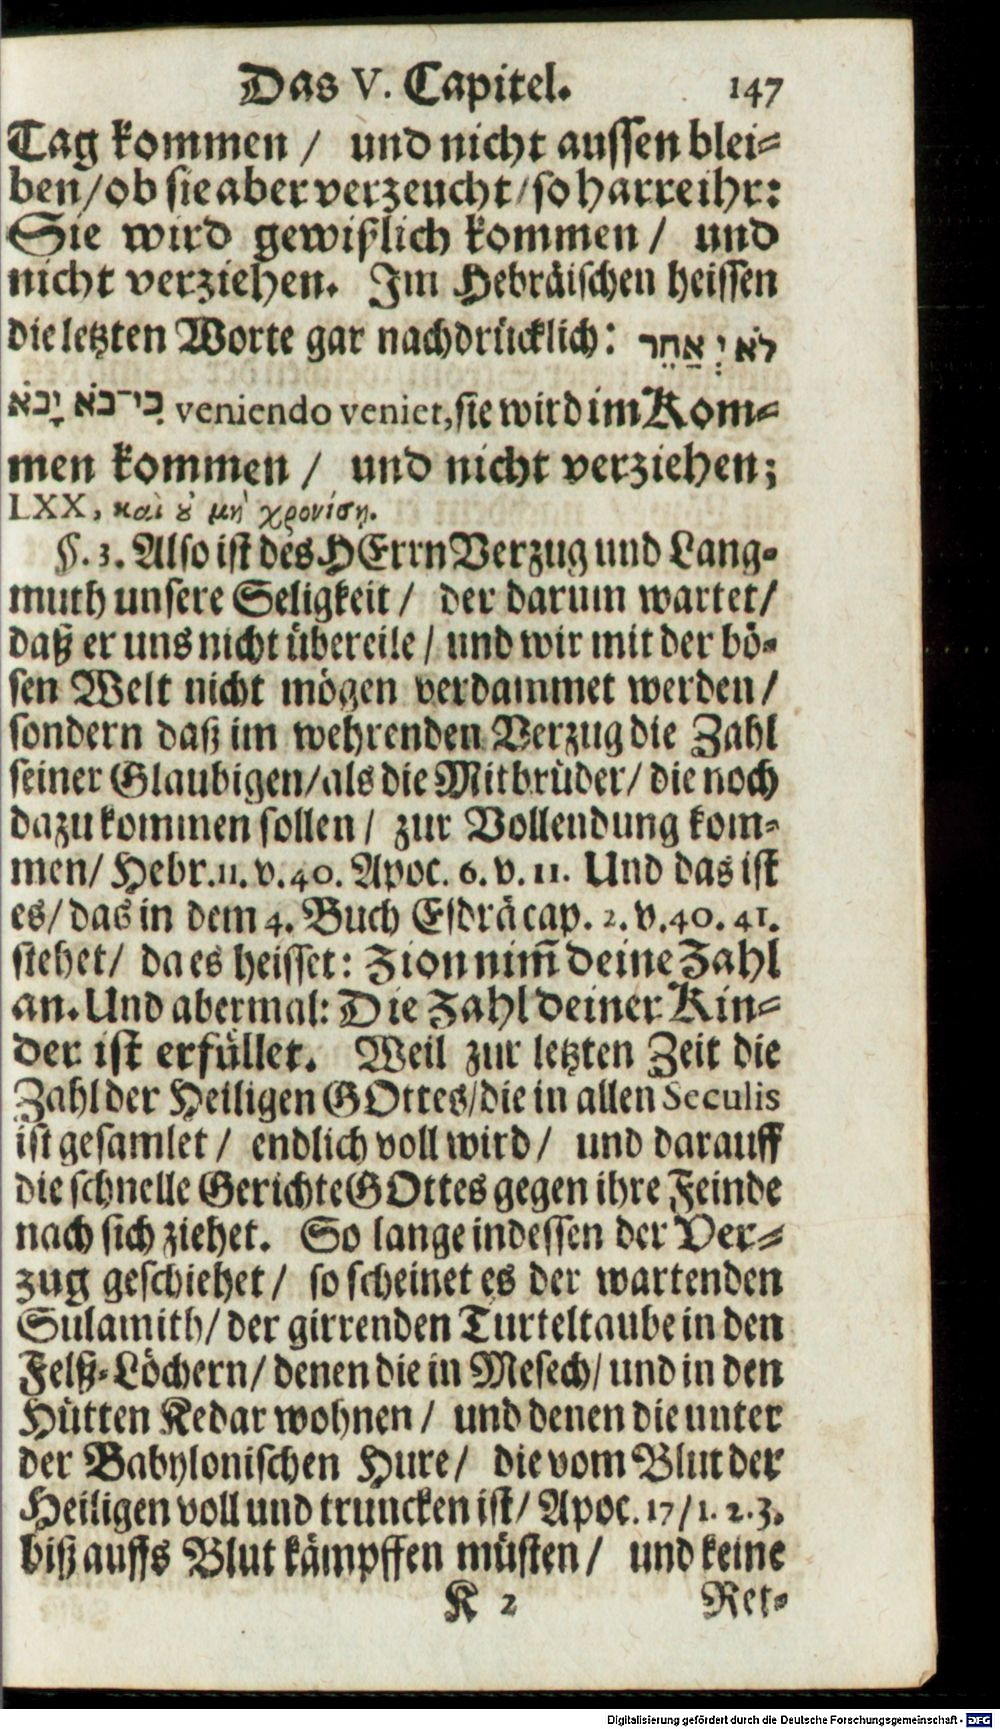 Das V. Capitel. 147
Tag kommen / und nicht aussen blei-
ben / ob sie aber verzeucht / so harre ihr:
Sie wird gewißlich kommen / und
nicht verziehen. Im Hebräischen heissen
die letzten Worte gar nachdrücklich: לֹא יְאַחֵר
כִּי־בֹא יָבֹא veniendo veniet, sie wird im Kom-
men kommen / und nicht verziehen;
LXX, καὶ ȣ̓ μὴ χρονίσῃ.
§. 3. Also ist des HErrn Verzug und Lang-
muth unsere Seligkeit / der darum wartet /
daß er uns nicht übereile / und wir mit der bö-
sen Welt nicht mögen verdammet werden /
sondern daß im wehrenden Verzug die Zahl
seiner Glaubigen / als die Mitbrüder / die noch
dazu kommen sollen / zur Vollendung kom-
men / Hebr. 11. v. 40. Apoc. 6. v. 11. Und das ist
es / das in dem 4. Buch Esdrä cap. 2. v. 40. 41.
stehet / da es heisset: Zion nim̃ deine Zahl
an. Und abermal: Die Zahl deiner Kin-
der ist erfüllet. Weil zur letzten Zeit die
Zahl der Heiligen GOttes / die in allen Seculis
ist gesamlet / endlich voll wird / und darauff
die schnelle Gerichte GOttes gegen ihre Feinde
nach sich ziehet. So lange indessen der Ver-
zug geschiehet / so scheinet es der wartenden
Sulamith / der girrenden Turteltaube in den
Felß-Löchern / denen die in Mesech / und in den
Hütten Kedar wohnen / und denen die unter
der Babylonischen Hure / die vom Blut der
Heiligen voll und truncken ist / Apoc. 17 / 1. 2. 3.
biß auffs Blut kämpffen müsten / und keine
K 2 Ret-
Digitalisierung gefördert durch die Deutsche Forschungsgemeinschaft - DFG